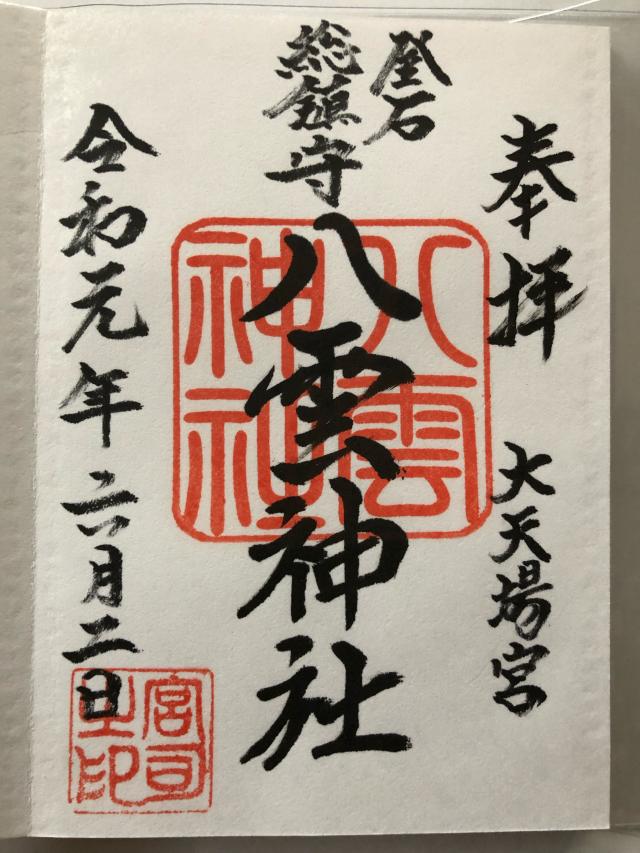 奉拝
大天場宮
釜石
総鎮守
八雲神社
令和元年六月二日
八雲神社
宮司之印